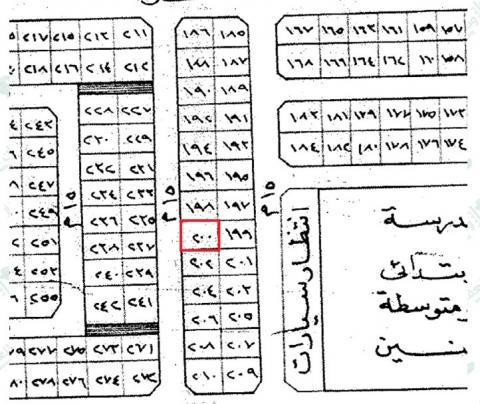 ٢١٧ ٢١٥ ٢١٣ ٢١١
٢١٨ ٢١٦ ٢١٤ ٢١٢
٢٢٨ ٢٢٧
٢٣٠ ٢٢٩
٢٣٢ ٢٣١
٢٣٤ ٢٣٣
٢٣٦ ٢٣٥
٢٣٨ ٢٣٧
٢٤٠ ٢٣٩
٢٤٢ ٢٤١
٢٤٣
٢٤٥
٢٤٧
٢٤٩
٢٥١
٢٥٣
٢٥٥
١٥م
١٨٦ ١٨٥
١٨٨ ١٨٧
١٩٠ ١٨٩
١٩٢ ١٩١
١٩٤ ١٩٣
١٩٦ ١٩٥
١٩٨ ١٩٧
٢٠٠ ١٩٩
٢٠٢ ٢٠١
٢٠٤ ٢٠٣
٢٠٦ ٢٠٥
٢٠٨ ٢٠٧
٢١٠ ٢٠٩
١٥م
١٦٧ ١٦٥ ١٦٣ ١٦١ ١٥٩ ١٥٧
١٦٨ ١٦٦ ١٦٤ ١٦٢ ١٦٠ ١٥٨
١٨٣ ١٨١ ١٧٩ ١٧٧ ١٧٥ ١٧٣
١٨٤ ١٨٢ ١٨٠ ١٧٨ ١٧٦ ١٧٤
١٥م
انتظار سيارات
درسة
بتدائى
متوسطة
نين
٢٨٧ ٢٨٥ ٢٨٣ ٢٨١
٢٨٨ ٢٨٦ ٢٨٤ ٢٨٢